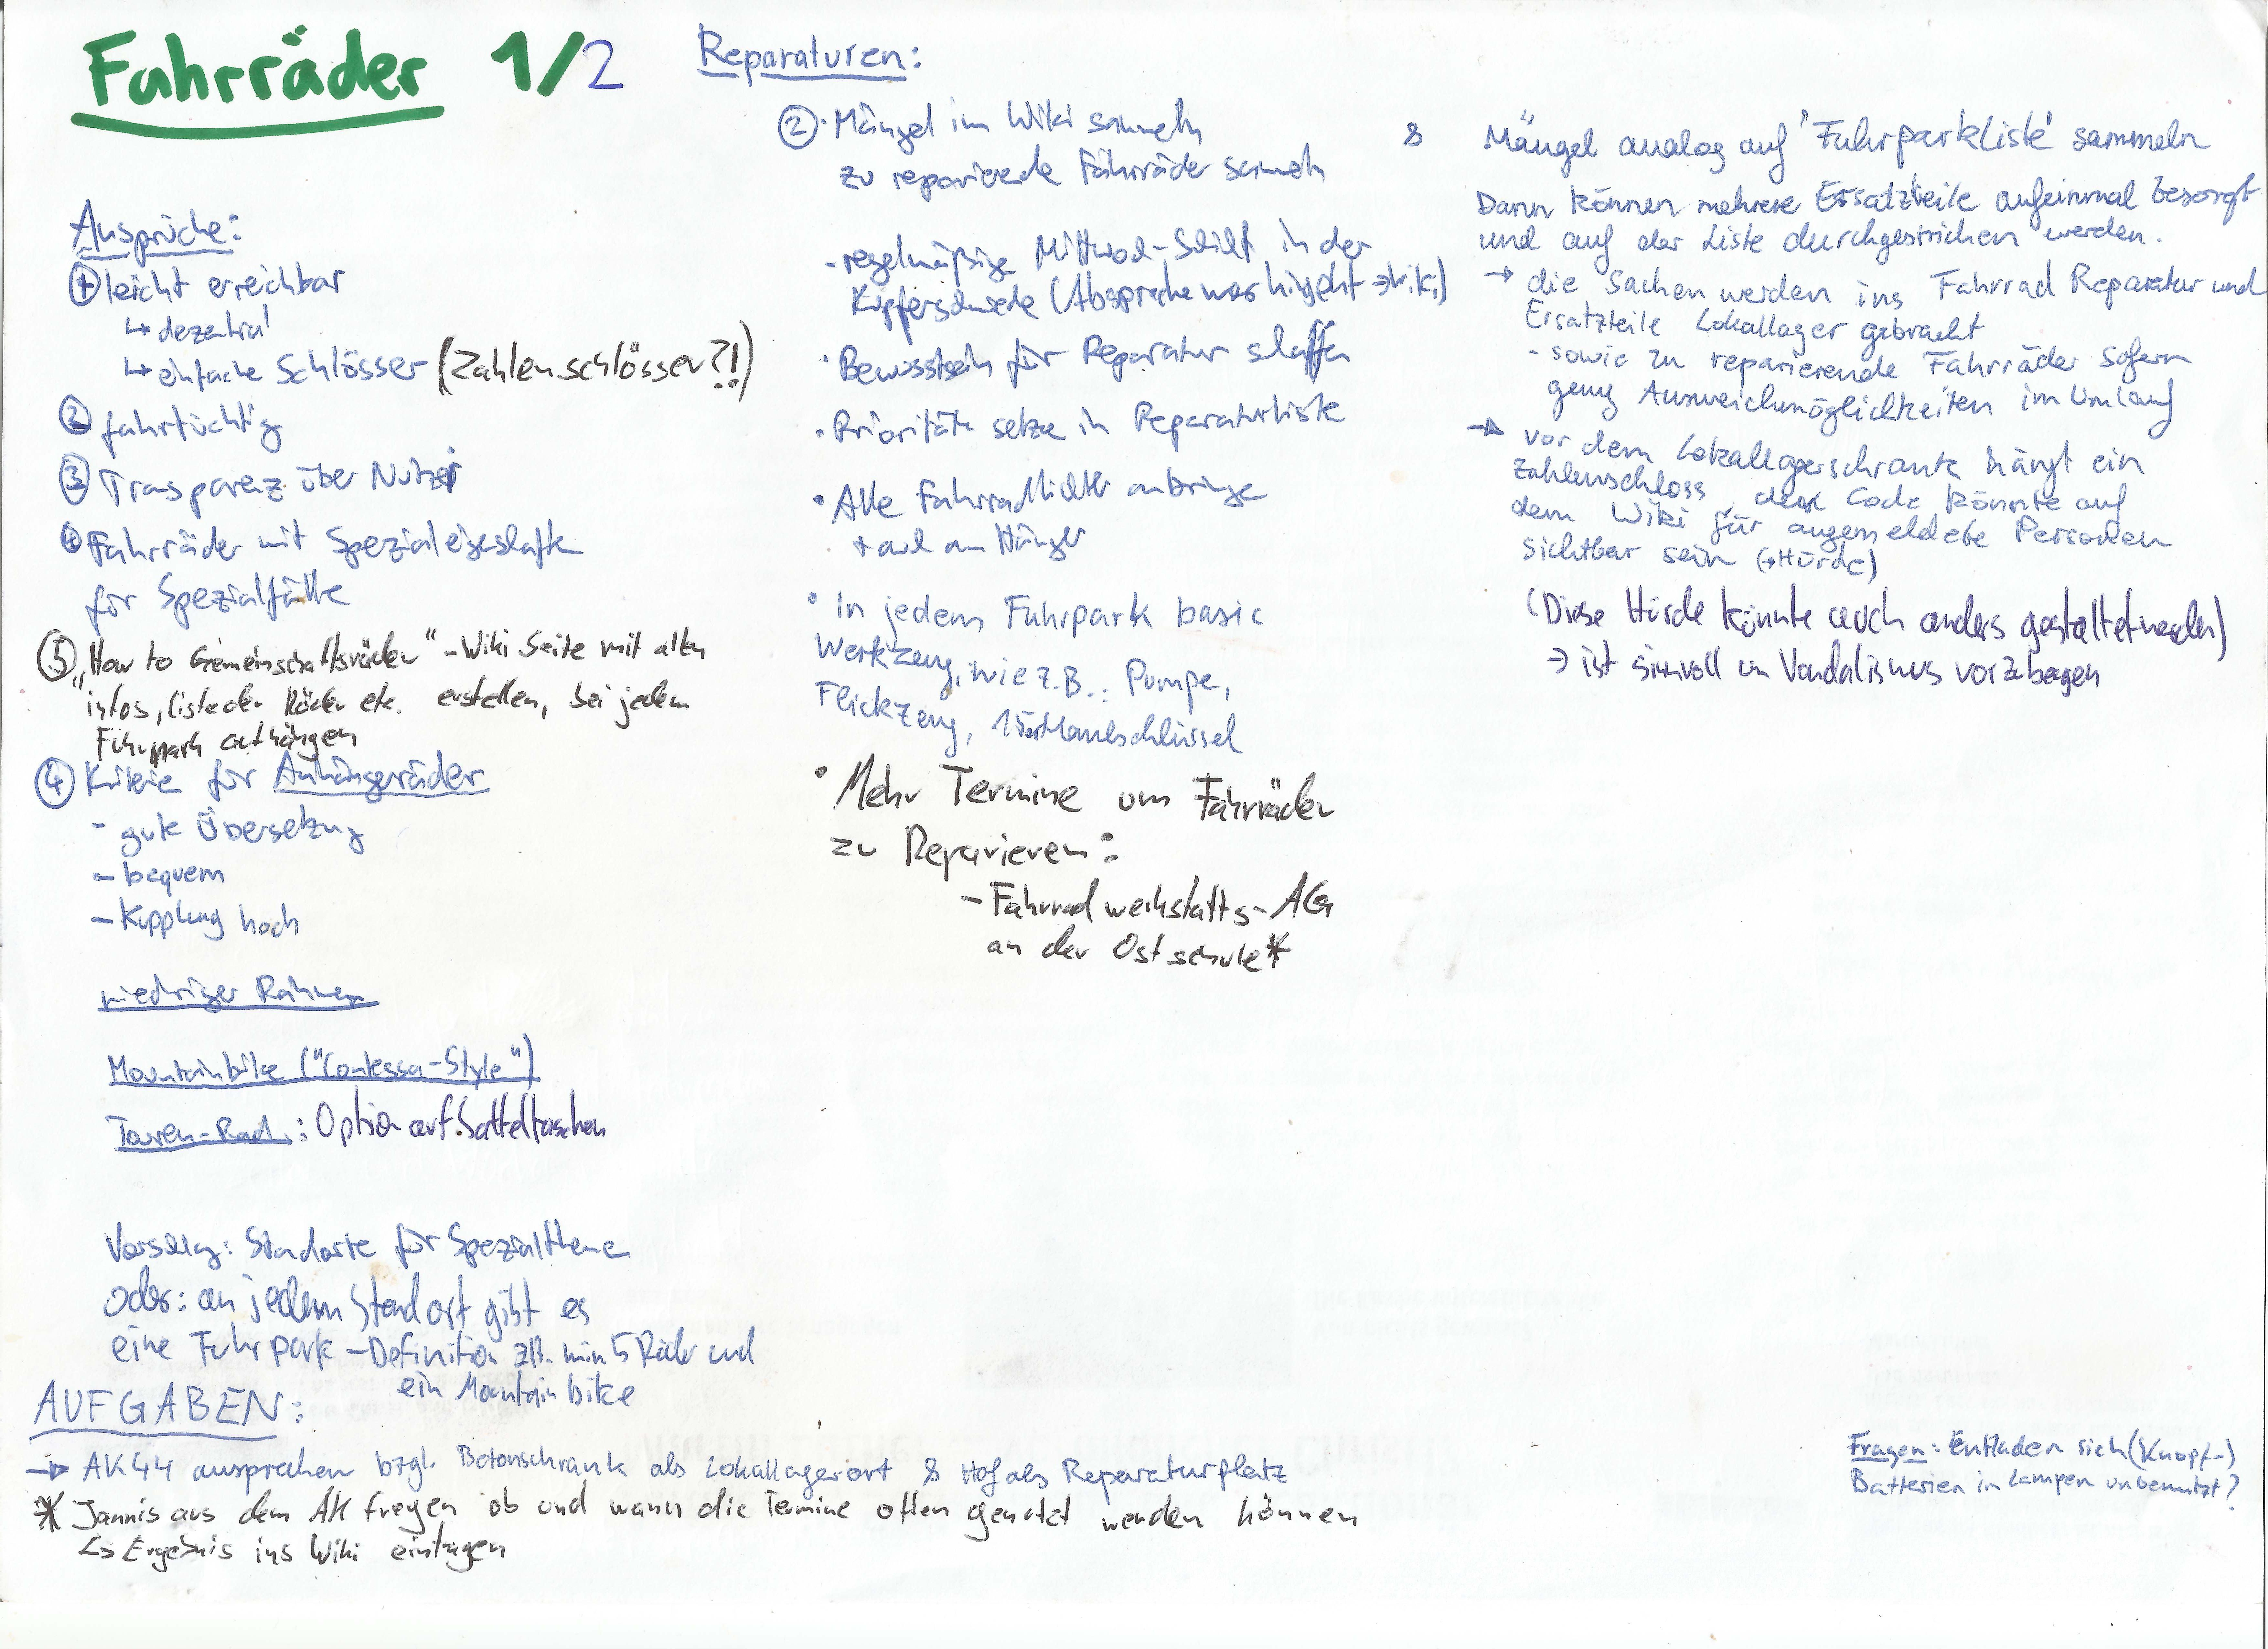 Fahrräder 1/2
Ansprüche:
① leicht erreichbar
↳ dezentral
↳ einfache Schlösser (Zahlenschlösser?!)
② fahrtüchtig
③ Trasparenz über
④ Fahrräder mit Spezialeigeschafte
für Spezialfälle
⑤ „How to Gemeinschaftsräder" - Wiki Seite mit allen
infos, liste der Räder etc. erstellen, bei jedem
Fuhrpark aufhängen
④ Kriterie für Anhängerräder
- gute Übersetzung
- bequem
- Kupplung hoch
niedriger Rahmen
Mountainbike ("Contessa-Style")
Touren-Rad: Option auf Satteltaschen
Vorschlag: Standorte für Spezialthemen
oder: an jedem Standort gibt es
eine Fuhrpark-Definition zB. min 5 Räder und
ein Mountainbike
Reparaturen:
② · Mängel im Wiki sammeln
zu reparierende Fahrräder sammeln
- regelmäßige Mittwoch-Schicht in der
Kupferschmiede (Absprache wer hingeht → Wiki)
· Bewusstsein für Reparatur schaffen
· Prioritäten setzen in Reparaturliste
· Alle Fahrradlichter anbringe
+ auch am Hänger
· in jedem Fuhrpark basic
Werkzeug, wie z.B.: Pumpe,
Flickzeug, 15er Maulschlüssel
· Mehr Termine um Fahrräder
zu Reparieren:
- Fahrradwerkstatts-AG
an der Ostschule*
& Mängel analog auf "Fuhrparkliste" sammeln
Dann können mehrere Ersatzteile aufeinmal besorgt
und auf der Liste durchgestrichen werden.
→ die Sachen werden ins Fahrrad Reparatur und
Ersatzteile Lokallager gebracht
- sowie zu reparierende Fahrräder sofern
genug Ausweichmöglichkeiten im Umlauf
→ vor dem Lokallagerschrank hängt ein
Zahlenschloss, der Code könnte auf
dem Wiki für angemeldete Personen
sichtbar sein (→Hürde)
(Diese Hürde könnte auch anders gestaltet werden)
→ ist sinnvoll um Vandalismus vorzubeugen
AUFGABEN:
→ AK44 ansprechen bzgl. Betonschrank als Lokallagerort & Hof als Reparaturplatz
* Jannis aus dem AK fragen ob und wann die Termine offen genutzt werden können
↳ Ergebnis ins Wiki eintragen
Fragen: Entladen sich (Knopf-)
Batterien in Lampen unbenutzt?